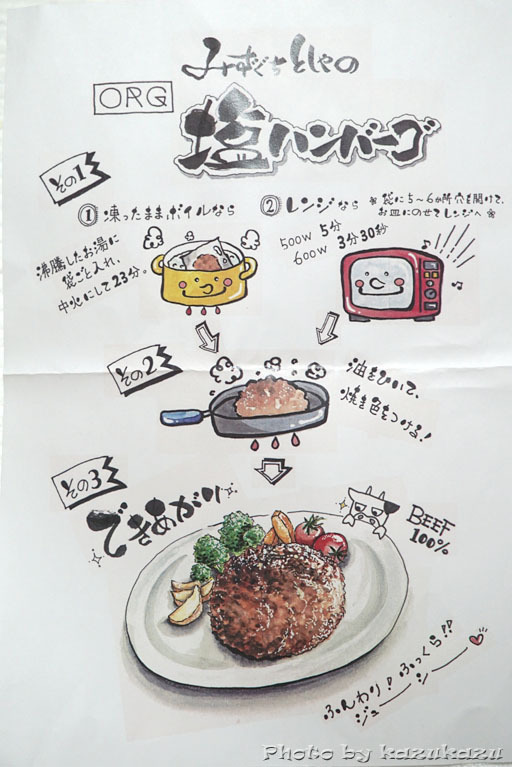 みずぐちとしゃの
ORG
塩ハンバーグ
その1
① 凍ったままボイルなら
沸騰したお湯に
袋ごと入れ、
中火にして23分。
② レンジなら
※袋に5~6か所穴を開けて、
お皿にのせてレンジへ※
500W 5分
600W 3分30秒
その2
油をひいて、
焼き色をつける!
その3
できあがり
BEEF
100%
ふんわり!ふっくら!!
ジューシー
Photo by kazukazu